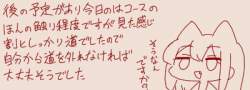 後の予定があり今日のはコースの
ほんの触り程度ですが見た感じ
割としっかり道でしたので
自分から道を外れなければ
大丈夫そうでした
そうなん
ですかの